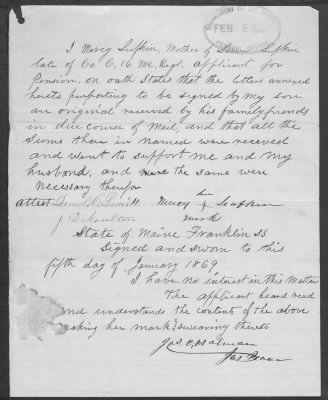 FEB 6
I Mercy Lufkin, Mother of Lufkin
late of Co C, 16 Me, Regt. applicant for
Pension, on oath States that the letters annexed
hereto purporting to be signed by my son
are original received by his family friends
in due course of Mail, and that all the
Sums there in named were received
and went to support me and my
husband, and the same were
necessary therefor
attest her
J D Moulton Mercy X Lufkin
mark
State of Maine Franklin SS
Signed and Sworn to this
fifth day of January 1869
I have no interest in this Matter
The applicant heard read
and understands the contents of the above
making her mark & swearing thereto
Jas
Jus Peace